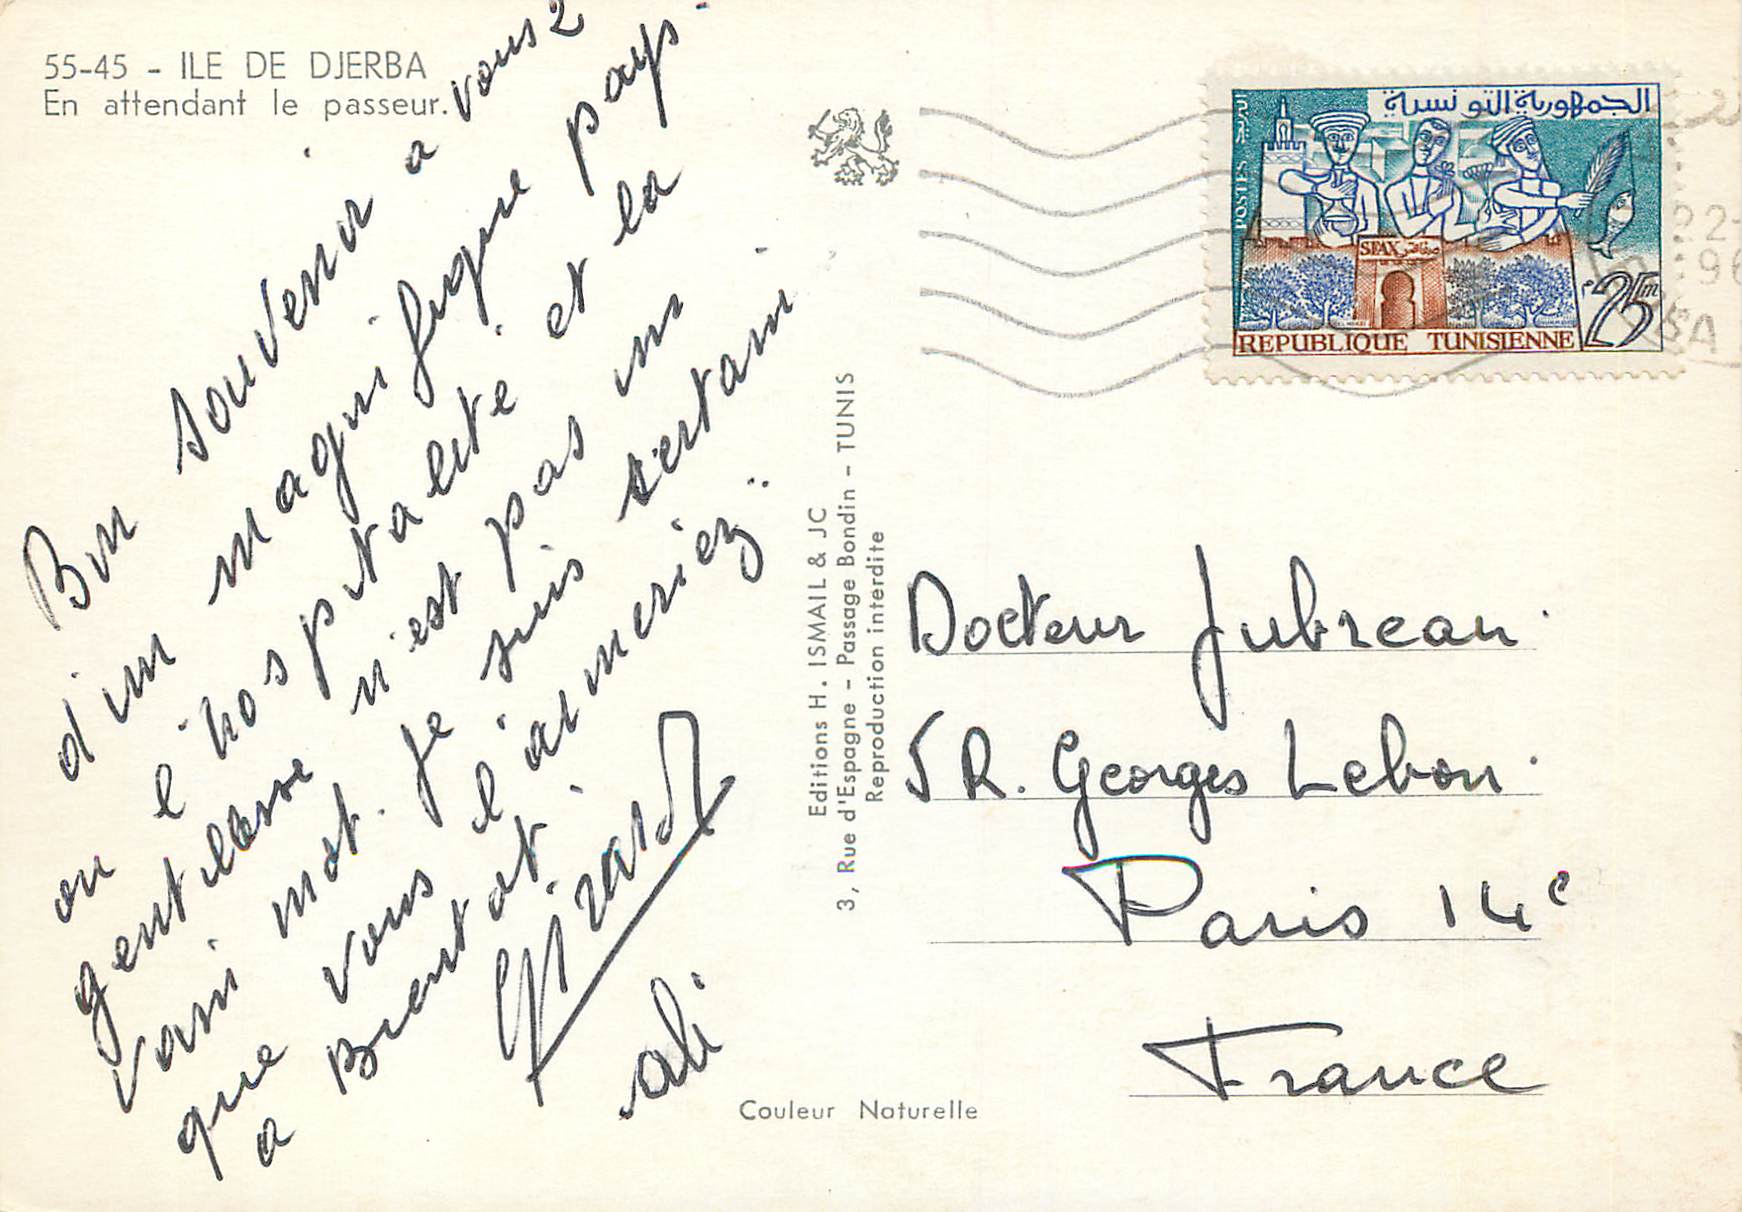 55-45 - ILE DE DJERBA
En attendant le passeur.
Bon souvenir a vous 2
d'un magnifique pays.
ou l'hospitalité et la
gentillesse n'est pas un
vain mot. Je suis certain
que vous l'aimeriez
a Bientot
Gérard
ali
Editions H. ISMAIL & JC
3, Rue d'Espagne - Passage Bondin - TUNIS
Reproduction interdite
Couleur Naturelle
الجمهورية التونسية
POSTES
SFAX صفاقس
25m
REPUBLIQUE TUNISIENNE
Docteur Jubreau.
5 R. Georges Lebon.
Paris 14e
France